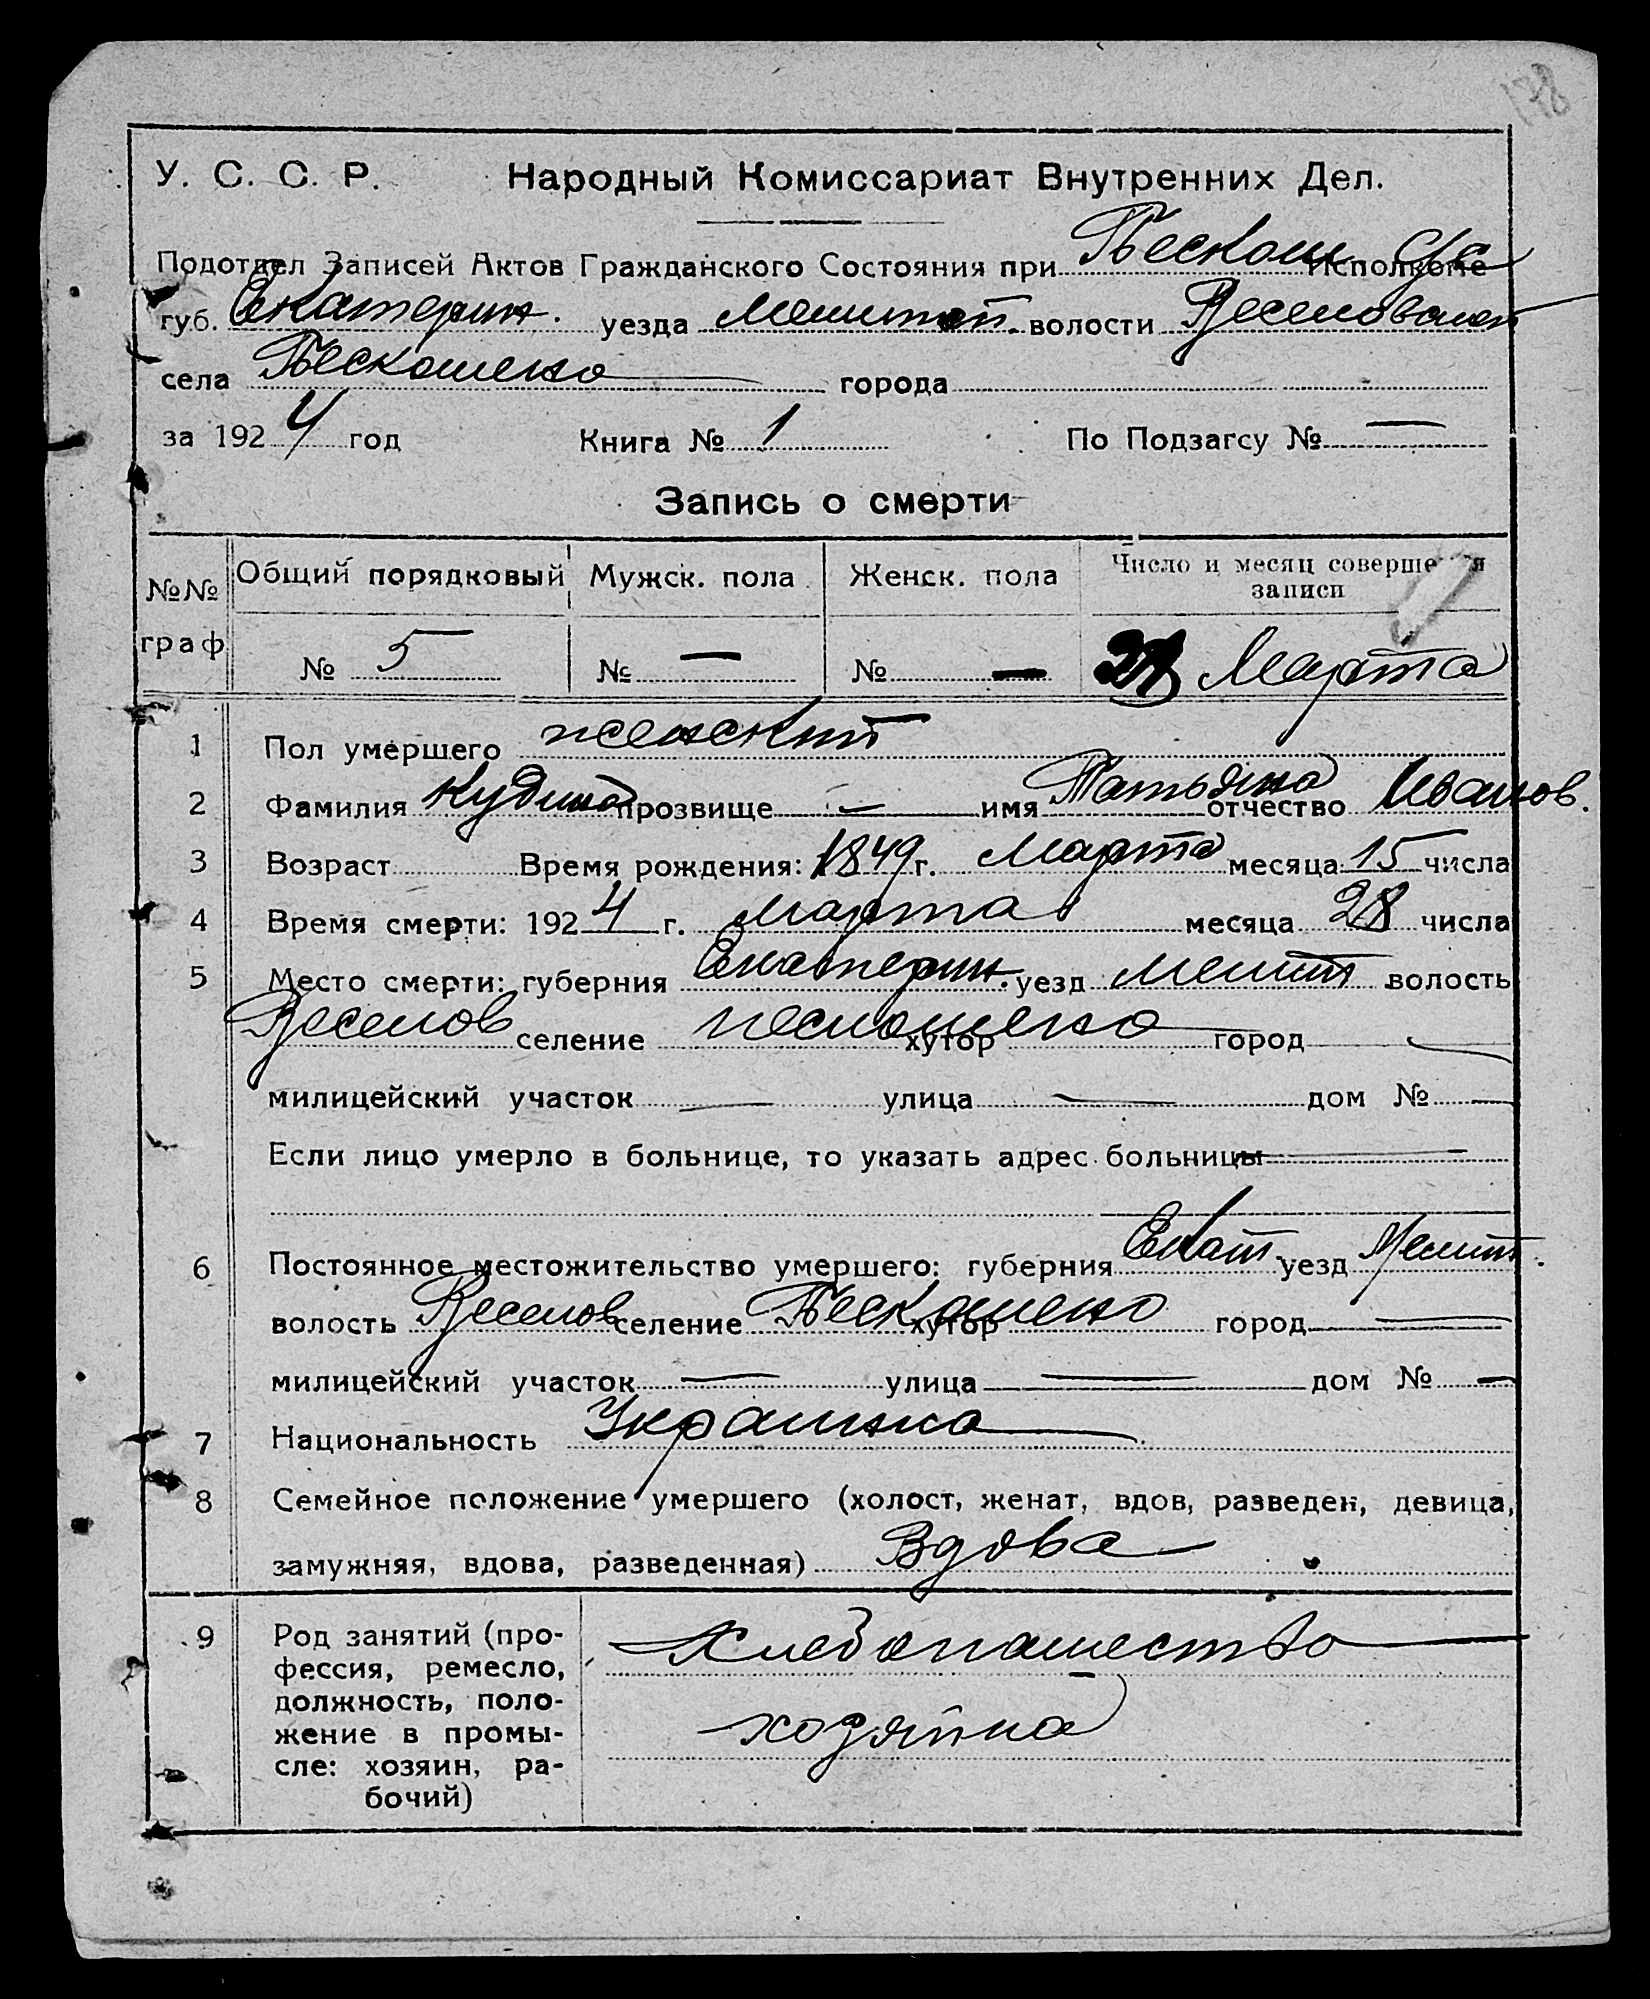 178
У. С. С. Р. Народный Комиссариат Внутренних Дел.
Подотдел Записей Актов Гражданского Состояния при Пескош Исполкоме
губ. Екатерин. уезда Мелитоп. волости Веселовской
села Пескошено города
за 1924 год Книга № 1 По Подзагсу № —
Запись о смерти
№№ граф Общий порядковый Мужск. пола Женск. пола Число и месяц совершения записи
№ 5 № — № — Марта
1 Пол умершего женский
2 Фамилия Кудина прозвище — имя Татьяна отчество Иванов.
3 Возраст Время рождения: 1849 г. Марта месяца 15 числа
4 Время смерти: 1924 г. марта месяца 28 числа
5 Место смерти: губерния Екатерин. уезд Мелит волость
Веселов селение Пескошено хутор город —
милицейский участок — улица — дом № —
Если лицо умерло в больнице, то указать адрес больницы —
6 Постоянное местожительство умершего: губерния Екат. уезд Мелит.
волость Веселов селение Пескошено хутор город —
милицейский участок — улица — дом № —
7 Национальность Украинка
8 Семейное положение умершего (холост, женат, вдов, разведен, девица,
замужняя, вдова, разведенная) Вдова
9 Род занятий (про-
фессия, ремесло,
должность, поло-
жение в промы-
сле: хозяин, ра-
бочий)
Хлебопашество
хозяйка